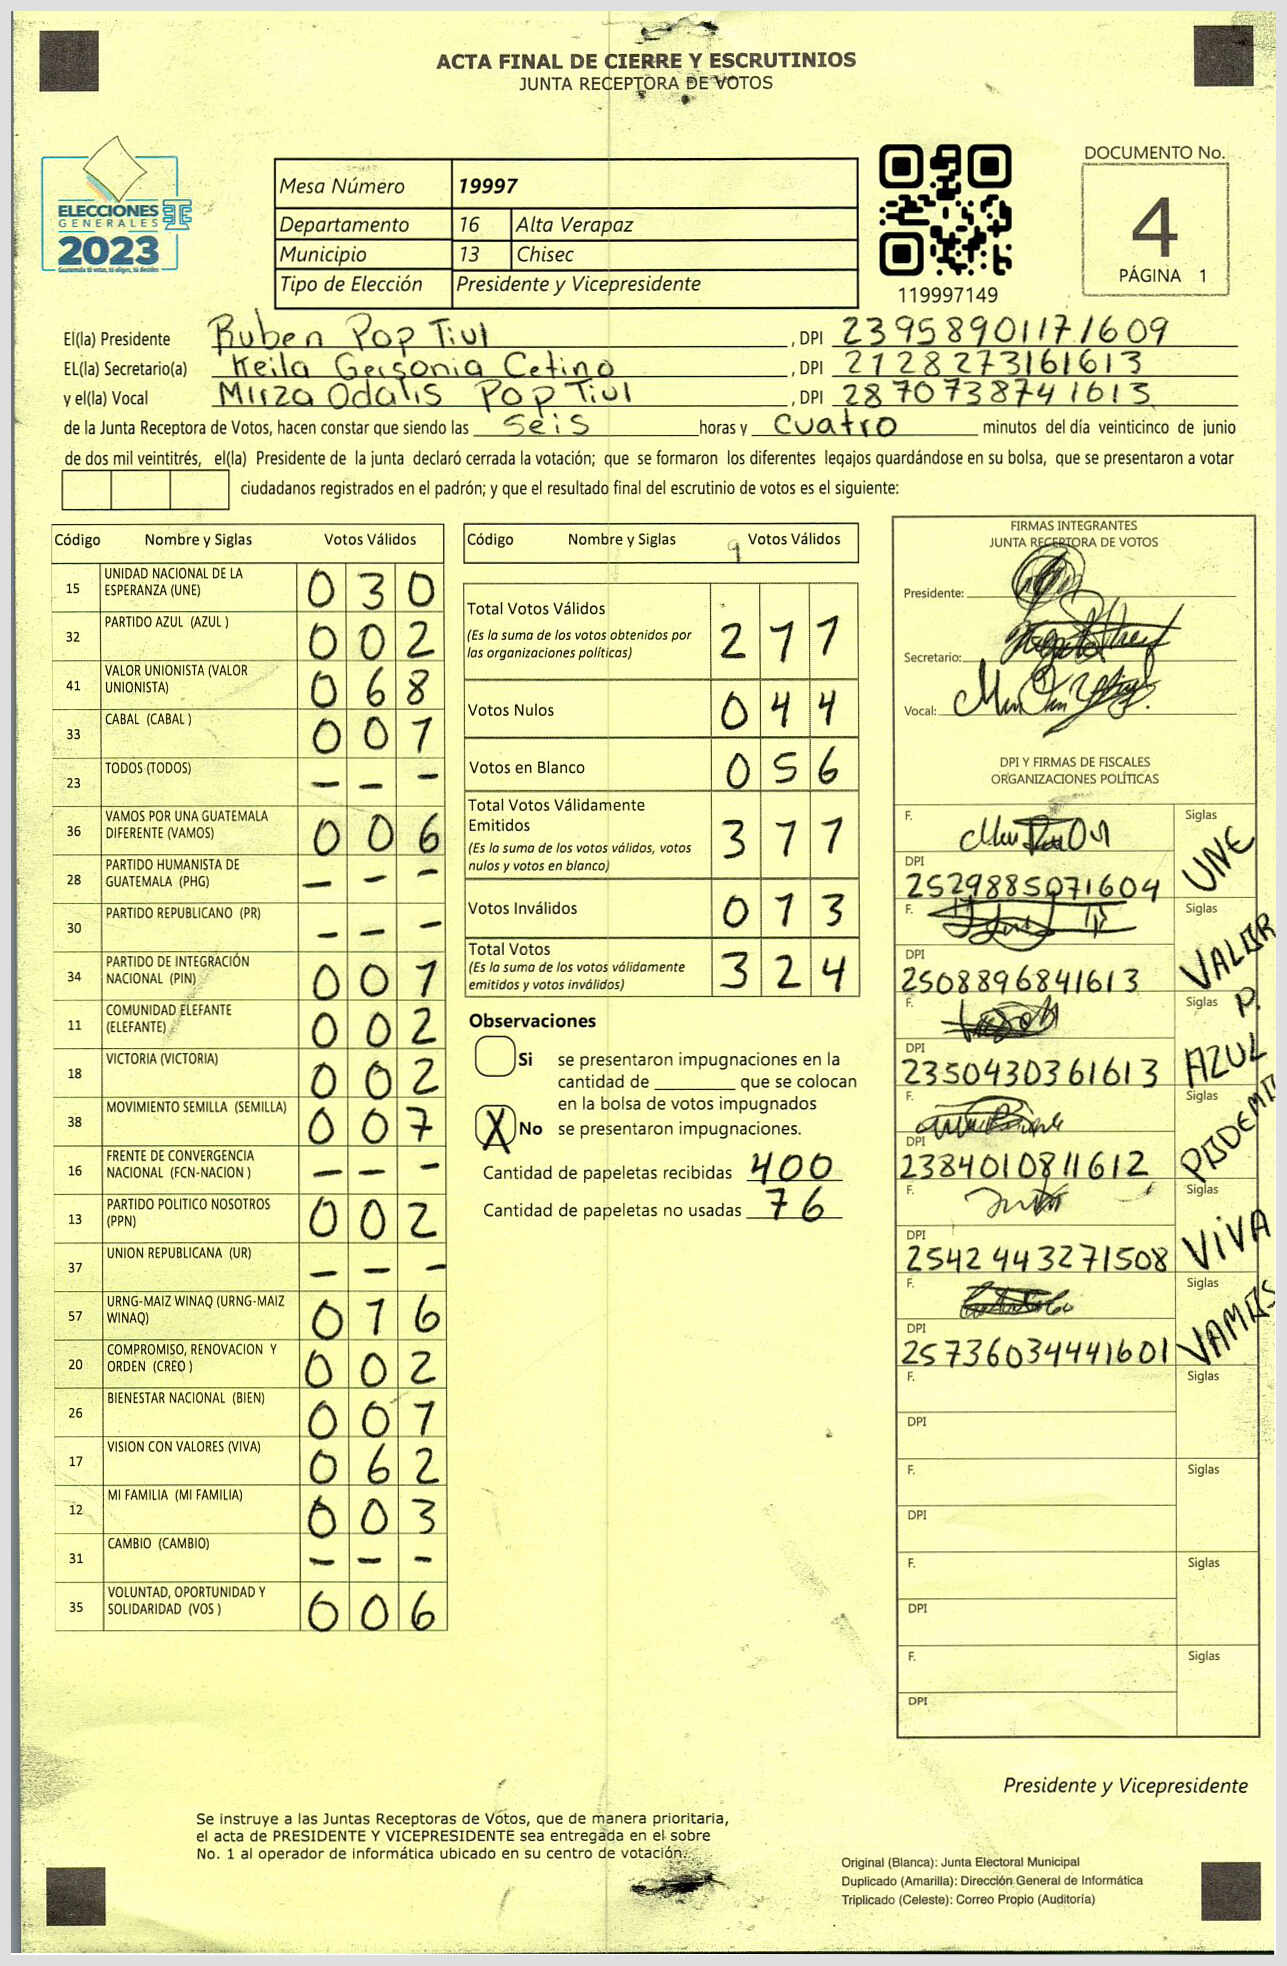 ACTA FINAL DE CIERRE Y ESCRUTINIOS
JUNTA RECEPTORA DE VOTOS
ELECCIONES
GENERALES
2023
Guatemala tú votas, tú eliges, tú decides
Mesa Número 19997
Departamento 16 Alta Verapaz
Municipio 13 Chisec
Tipo de Elección Presidente y Vicepresidente
119997149
DOCUMENTO No.
4
PÁGINA 1
El(la) Presidente Ruben Pop Tiul , DPI 2395890117 1609
EL(la) Secretario(a) Keila Gersonia Cetino , DPI 2128273161613
y el(la) Vocal Mirza Odalis Pop Tiul , DPI 2870738741613
de la Junta Receptora de Votos, hacen constar que siendo las seis horas y cuatro minutos del día veinticinco de junio
de dos mil veintitrés, el(la) Presidente de la junta declaró cerrada la votación; que se formaron los diferentes legajos guardándose en su bolsa, que se presentaron a votar
ciudadanos registrados en el padrón; y que el resultado final del escrutinio de votos es el siguiente:
Código Nombre y Siglas Votos Válidos
15 UNIDAD NACIONAL DE LA ESPERANZA (UNE) 0 3 0
32 PARTIDO AZUL (AZUL ) 0 0 2
41 VALOR UNIONISTA (VALOR UNIONISTA) 0 6 8
33 CABAL (CABAL ) 0 0 1
23 TODOS (TODOS) - - -
36 VAMOS POR UNA GUATEMALA DIFERENTE (VAMOS) 0 0 6
28 PARTIDO HUMANISTA DE GUATEMALA (PHG) - - -
30 PARTIDO REPUBLICANO (PR) - - -
34 PARTIDO DE INTEGRACIÓN NACIONAL (PIN) 0 0 1
11 COMUNIDAD ELEFANTE (ELEFANTE) 0 0 2
18 VICTORIA (VICTORIA) 0 0 2
38 MOVIMIENTO SEMILLA (SEMILLA) 0 0 7
16 FRENTE DE CONVERGENCIA NACIONAL (FCN-NACION ) - - -
13 PARTIDO POLITICO NOSOTROS (PPN) 0 0 2
37 UNION REPUBLICANA (UR) - - -
57 URNG-MAIZ WINAQ (URNG-MAIZ WINAQ) 0 1 6
20 COMPROMISO, RENOVACION Y ORDEN (CREO ) 0 0 2
26 BIENESTAR NACIONAL (BIEN) 0 0 1
17 VISION CON VALORES (VIVA) 0 6 2
12 MI FAMILIA (MI FAMILIA) 0 0 3
31 CAMBIO (CAMBIO) - - -
35 VOLUNTAD, OPORTUNIDAD Y SOLIDARIDAD (VOS ) 0 0 6
Código Nombre y Siglas 9 Votos Válidos
Total Votos Válidos 2 1 1
(Es la suma de los votos obtenidos por
las organizaciones políticas)
Votos Nulos 0 4 4
Votos en Blanco 0 5 6
Total Votos Válidamente
Emitidos 3 1 1
(Es la suma de los votos válidos, votos
nulos y votos en blanco)
Votos Inválidos 0 1 3
Total Votos 3 2 4
(Es la suma de los votos válidamente
emitidos y votos inválidos)
Observaciones
Si se presentaron impugnaciones en la
cantidad de ________ que se colocan
en la bolsa de votos impugnados
X No se presentaron impugnaciones.
Cantidad de papeletas recibidas 400
Cantidad de papeletas no usadas 76
FIRMAS INTEGRANTES
JUNTA RECEPTORA DE VOTOS
Presidente:
Secretario:
Vocal:
DPI Y FIRMAS DE FISCALES
ORGANIZACIONES POLÍTICAS
F. Siglas UNE
DPI 2529885071604
F. Siglas VALOR
DPI 2508896841613
F. Siglas P. AZUL
DPI 2350430361613
F. Siglas PODEMOS
DPI 2384010811612
F. Siglas VIVA
DPI 2542 443271508
F. Siglas VAMOS
DPI 2573603444 1601
F. Siglas
DPI
F. Siglas
DPI
F. Siglas
DPI
F. Siglas
DPI
Presidente y Vicepresidente
Se instruye a las Juntas Receptoras de Votos, que de manera prioritaria,
el acta de PRESIDENTE Y VICEPRESIDENTE sea entregada en el sobre
No. 1 al operador de informática ubicado en su centro de votación.
Original (Blanca): Junta Electoral Municipal
Duplicado (Amarilla): Dirección General de Informática
Triplicado (Celeste): Correo Propio (Auditoría)